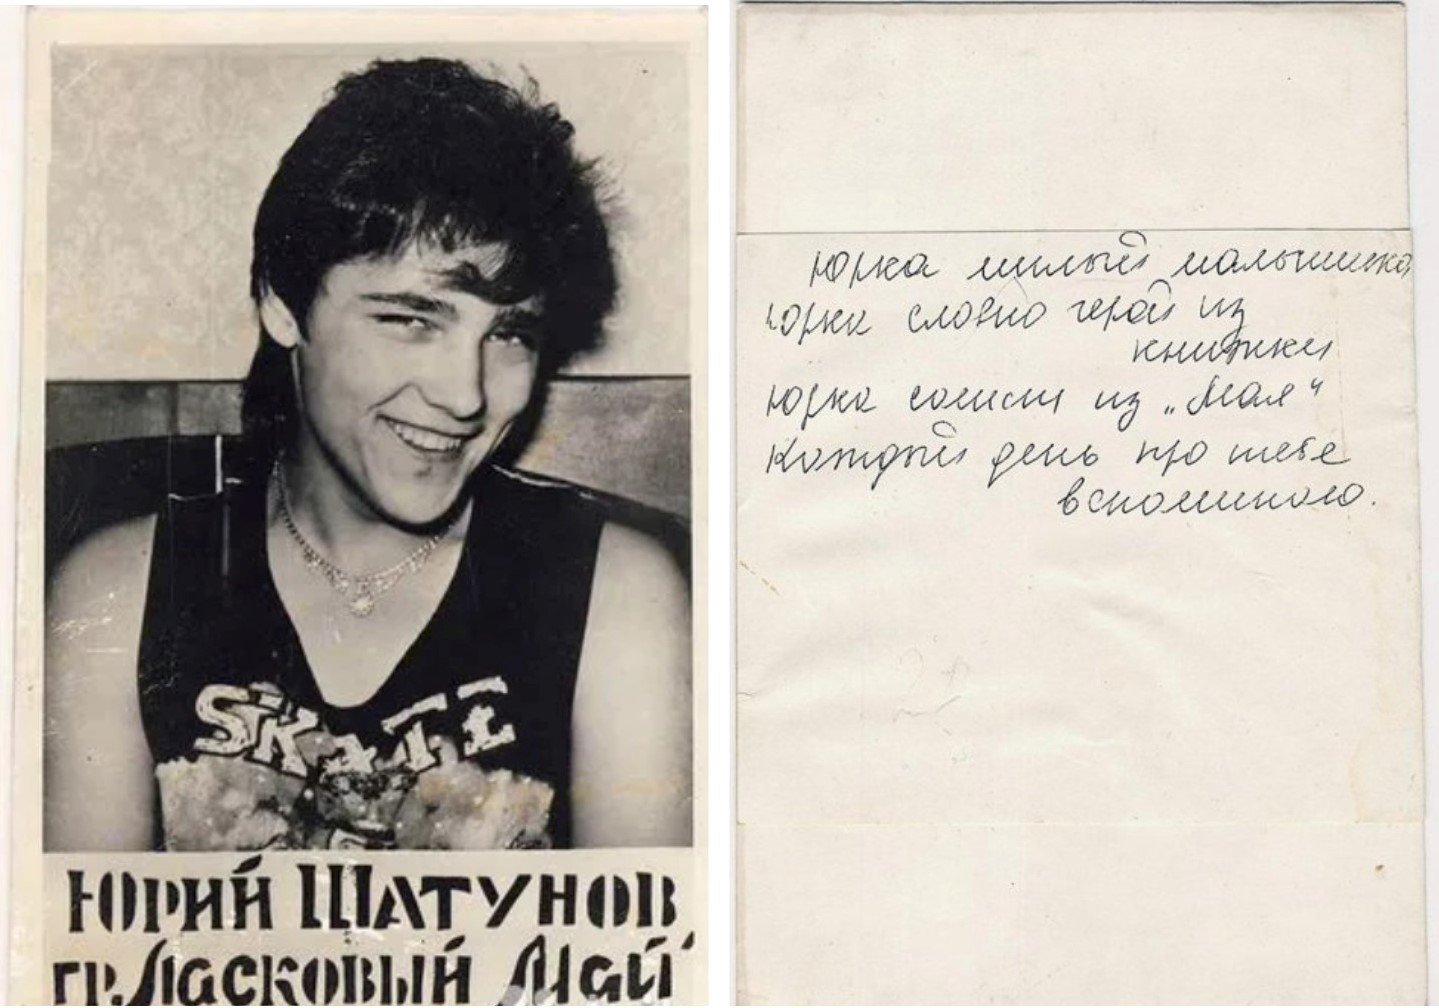 SKATE
ЮРИЙ ШАТУНОВ
ГР. Ласковый Май"
Юрка милый малышка
Юрка словно герой из
книжки
Юрка солист из „Мая"
Каждый день про тебе
вспоминаю.